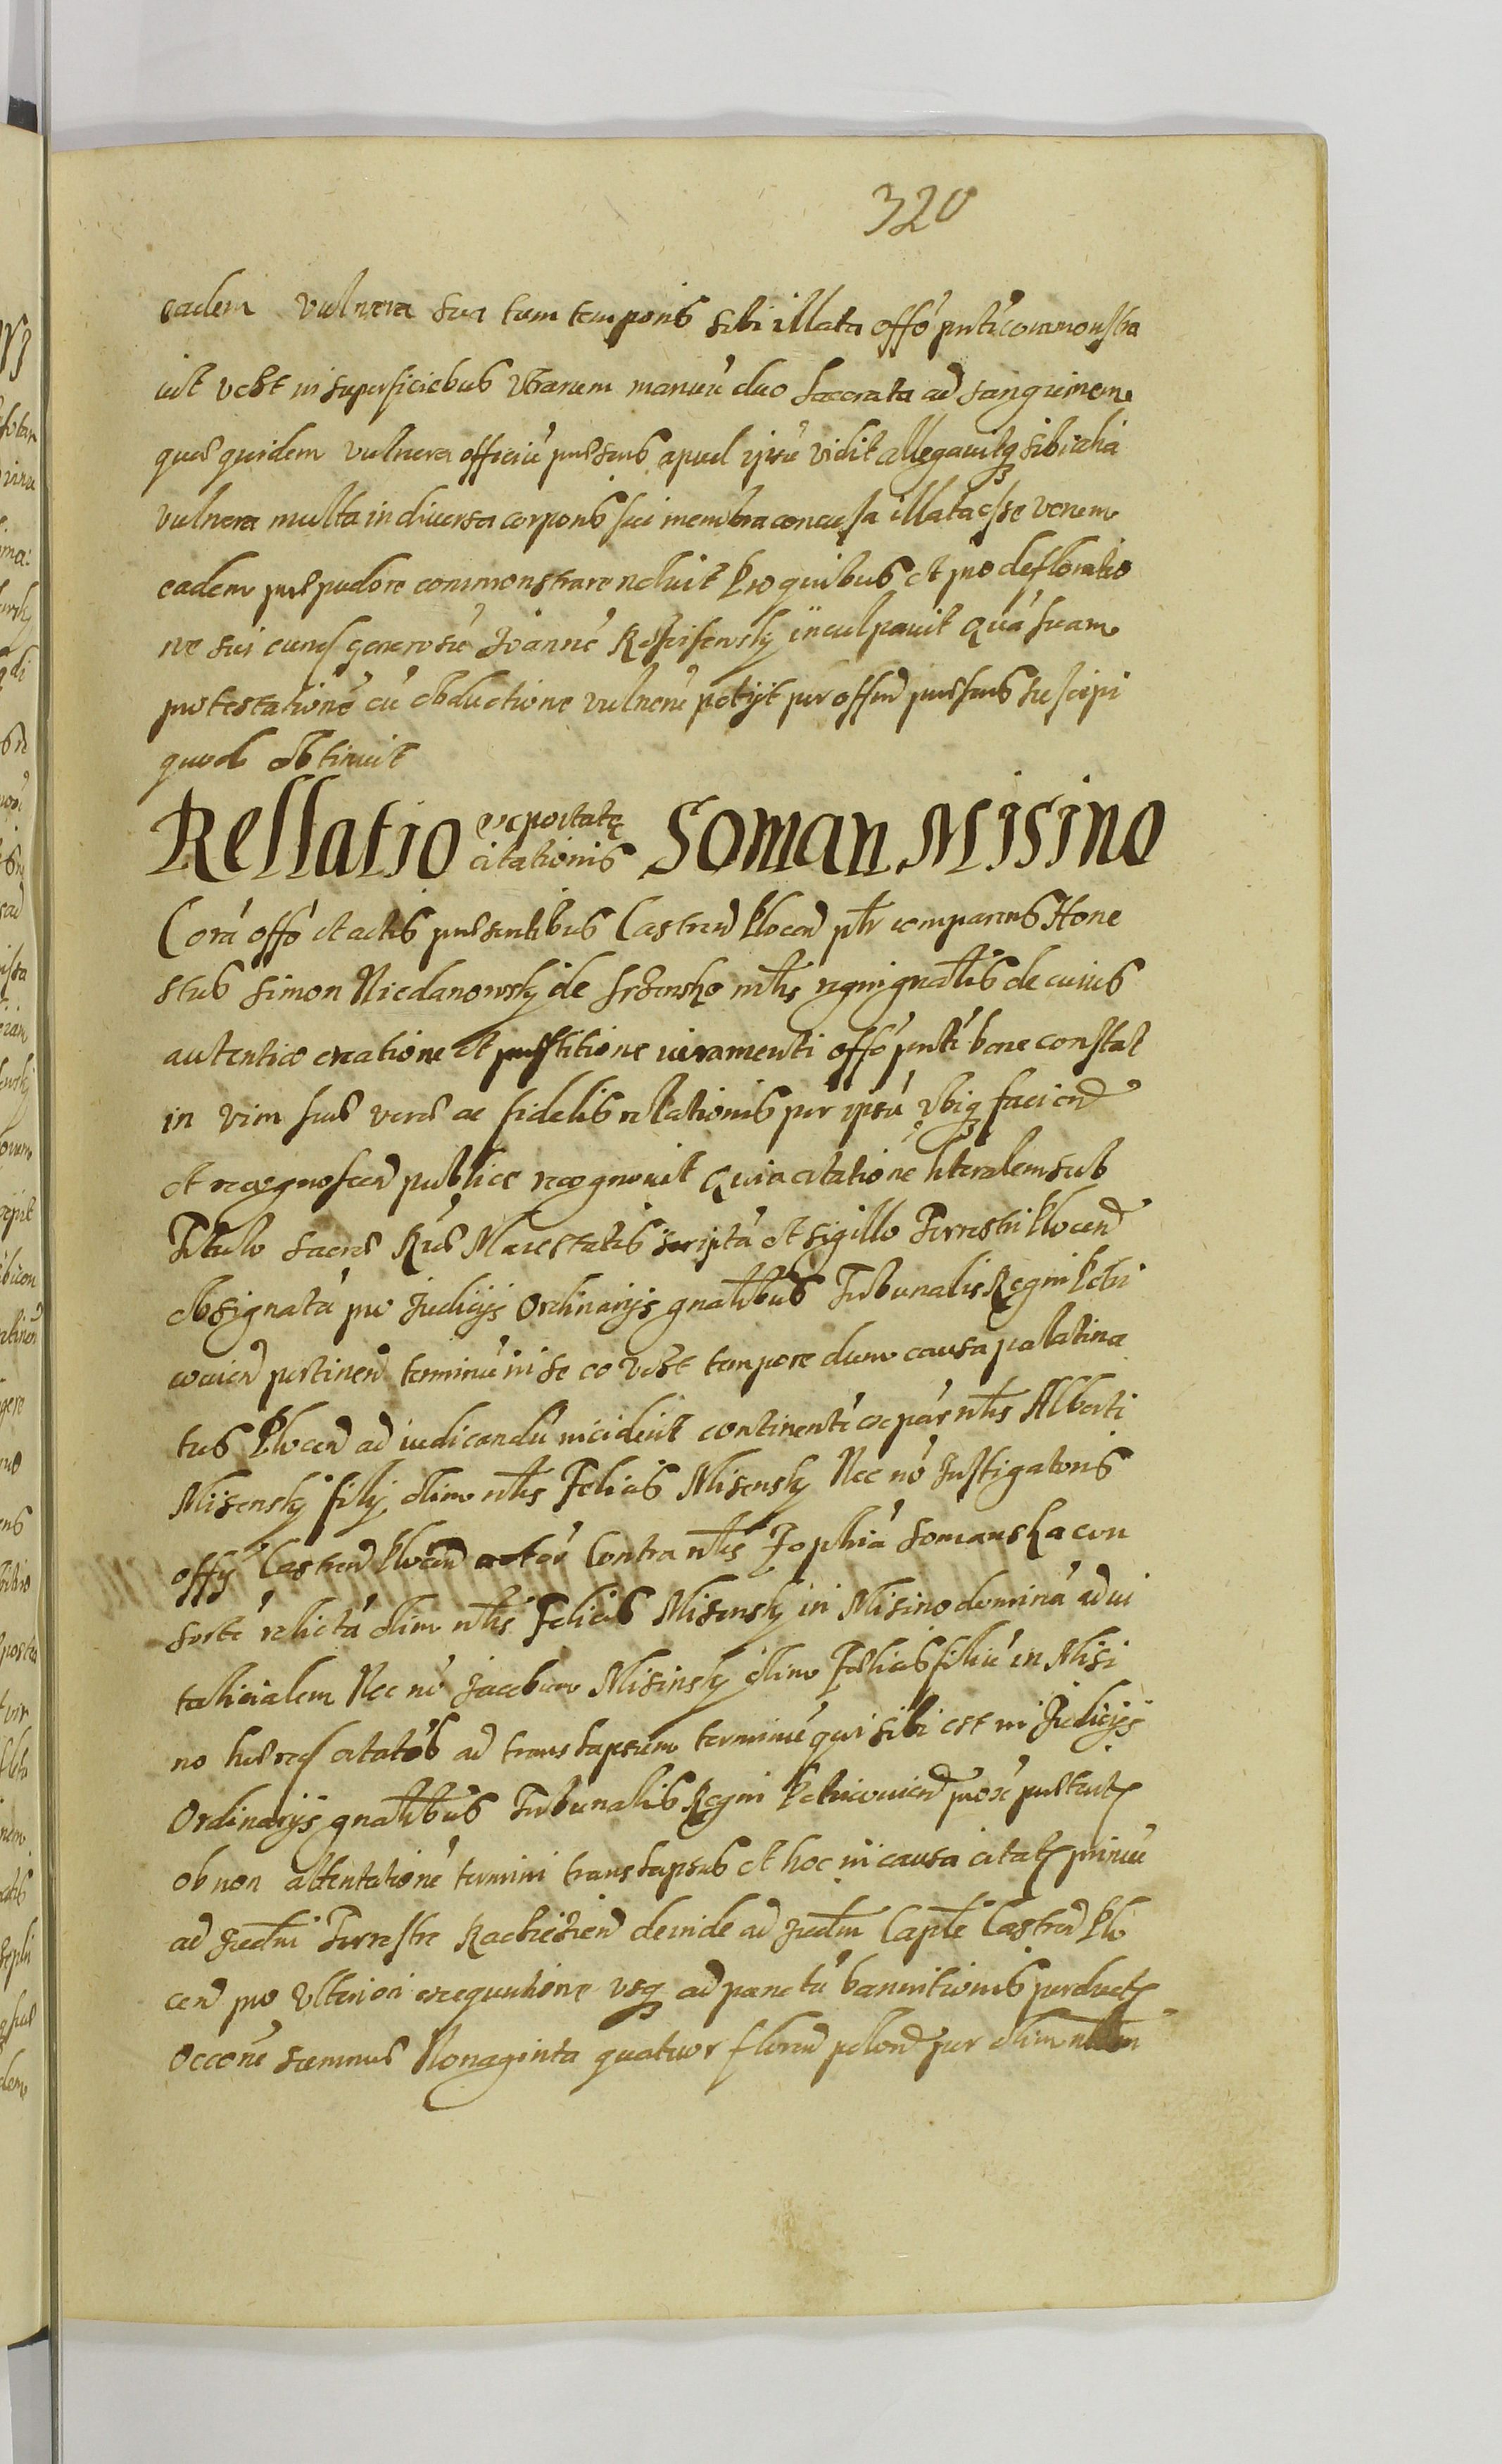 320
eadem vulnera sua tum temporis sibi illata offō pnti commonstra
uit vebt in superficiebus vtrarum manuū duo lacerata ad sanguinem
quæ quidem vulnera officiū præsens apud ipsū vidit allegauitq sibi alia
vulnera multa in diuersa corporis sui membra concussa illata esse verum
eadem præ pudore commonstrare noluit Pro quibus et pro defloratio
ne sui eund generosū Joannē inculpauit Quā suam
protestationē cū obductione vulnerū petijt per offm præsens suscipi
quod obtinuit
Rellatio reportatę citationis Soman Misino
Corā offō et actis præsentibus Castren Plocen pltr comparens Hone
stus Simon Niedanowsky de Srzensko mtis regni gnalis de cuius
autentica creatione et præstitione iuramenti offō pnti bene constat
in vim suæ veræ ac fidelis relationis per ipsū vbiq faciend
et recognoscend publice recognouit Quia citationē literalem sub
Titulo Sacræ Rᵉ Maiestatis scriptā et sigillo Terrestri Plocen
obsignatā pro Judicijs Ordinarijs gnalibus Tribunalis Regni Petri
couien pertinen terminū in se eo vebt tempore dum causa palatina
tus Plocen ad iudicandū inciderit continentē ex par nlis Alberti
Misensky filij olim nlis Felicis Misensky Nec nō Instigatoris
offij Castren Plocen actor Contra nlis Zophiā Somanska con
sortē relictā olim nlis Felicis Misensky in Misino dominā adui
talicialem Nec nō Jacobum Misinsky olim Felicis filiū in Misi
no hæred citatos ad translapsum terminū qui sibi est in Judicijs
Ordinarijs gnalibus Tribunalis Regni Petricouien prox præterit
ob non attentationē termini translapsus et hoc in causa citat primū
ad Judm Terrestre Raciezien deinde ad Judm Caple Castren Plo
cen pro vlteriori exequutione vsq ad punctū bannitionis perduct
Occōne summæ Nonaginta quatuor floren polon per olim